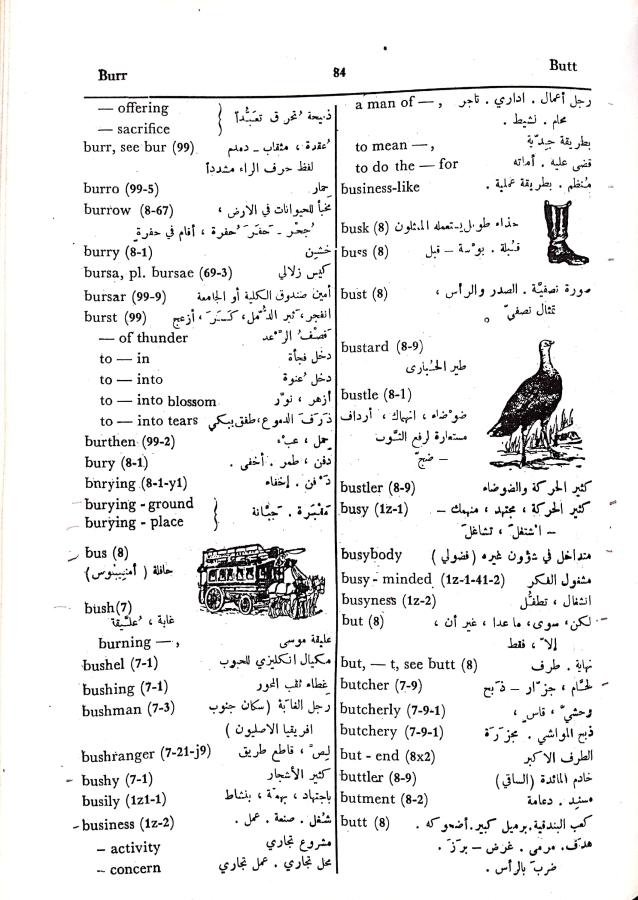 Burr
84
Butt
— offering
— sacrifice } ذبيحة تُحرق تعبُّداً
burr, see bur (99) عُقدة ، مثقاب - دمدم
لفظ حرف الراء مشدداً
burro (99-5) حمار
burrow (8-67) مخبأ للحيوانات في الارض ،
جُحْر - حَفَرَ حُفرة ، أقام في حفرة
burry (8-1) خشين
bursa, pl. bursae (69-3) كيس زلالي
bursar (99-9) أمين صندوق الكلية أو الجامعة
burst (99) انفجر،
— of thunder قصْفُ الرَّعد
to — in دخل فجأة
to — into دخل عُنوة
to — into blossom أزهر ، نوَّر
to — into tears ذَرَفَ الدموع، طفق يبكي
burthen (99-2) حِمل ، عبء
bury (8-1) دفن ، طمر . أخفى .
bnrying (8-1-y1) دَفن . إخفاء
burying - ground
burying - place } مَقبَرة . جَبّانة
bus (8)
حافلة ( أمنيبوس )
bush(7)
غابة ، عُلَّيقة
burning —, عليقة موسى
bushel (7-1) مكيال انكليزي للحبوب
bushing (7-1) غطاء ثقب المحور
bushman (7-3) رجل الغابة ( سكان جنوب
افريقيا الاصليون )
bushranger (7-21-j9) ليصّ ، قاطع طريق
bushy (7-1) كثير الأشجار
busily (1z1-1) باجتهاد ، بهمّة ، بنشاط
business (1z-2) شُغل . صنعة . عمل .
– activity مشروع تجاري
– concern محل تجاري . عمل تجاري
a man of —, رجل أعمال . اداري . تاجر
محام . نشيط .
to mean —, بطريقة جدّية
to do the — for قضى عليه . أماته
business-like مُنظم . بطريقة عملية .
busk (8) حذاء طويل يستعمله الممثلون
bues (8) قُبلة . بوْسة – قبل
bust (8) صورة نصفيّة . الصدر والرأس ،
تمثال نصفيّ
bustard (8-9)
طير الحُبارى
bustle (8-1)
ضوضاء ، انهماك ، أرداف
مستعارة لرفع الثوب
– ضجّ
bustler (8-9) كثير الحركة والضوضاء
busy (1z-1) كثير الحركة ، مجتهد ، منهمك –
– اشتغلَ ، تشاغلَ
busybody متداخل في شؤون غيره ( فضولي )
busy - minded (1z-1-41-2) مشغول الفكر
busyness (1z-2) انشغال ، تطفُّل
but (8) لكن، سوى، ما عدا ، غير أن ،
إلاّ ، فقط
but, — t, see butt (8) نهاية . طرف
butcher (7-9) لحّام ، جزّار – ذبح
butcherly (7-9-1) وحشيّ ، قاسٍ ،
butchery (7-9-1) ذبح المواشي . مجزَرة
but - end (8x2) الطرف الاكبر
buttler (8-9) خادم المائدة (الساقي)
butment (8-2) مسنيد . دعامة
butt (8) كعب البندقية. برميل كبير. أضحوكه .
هدف. مرمى . غرض – برزَ .
ضربَ بالرأس .